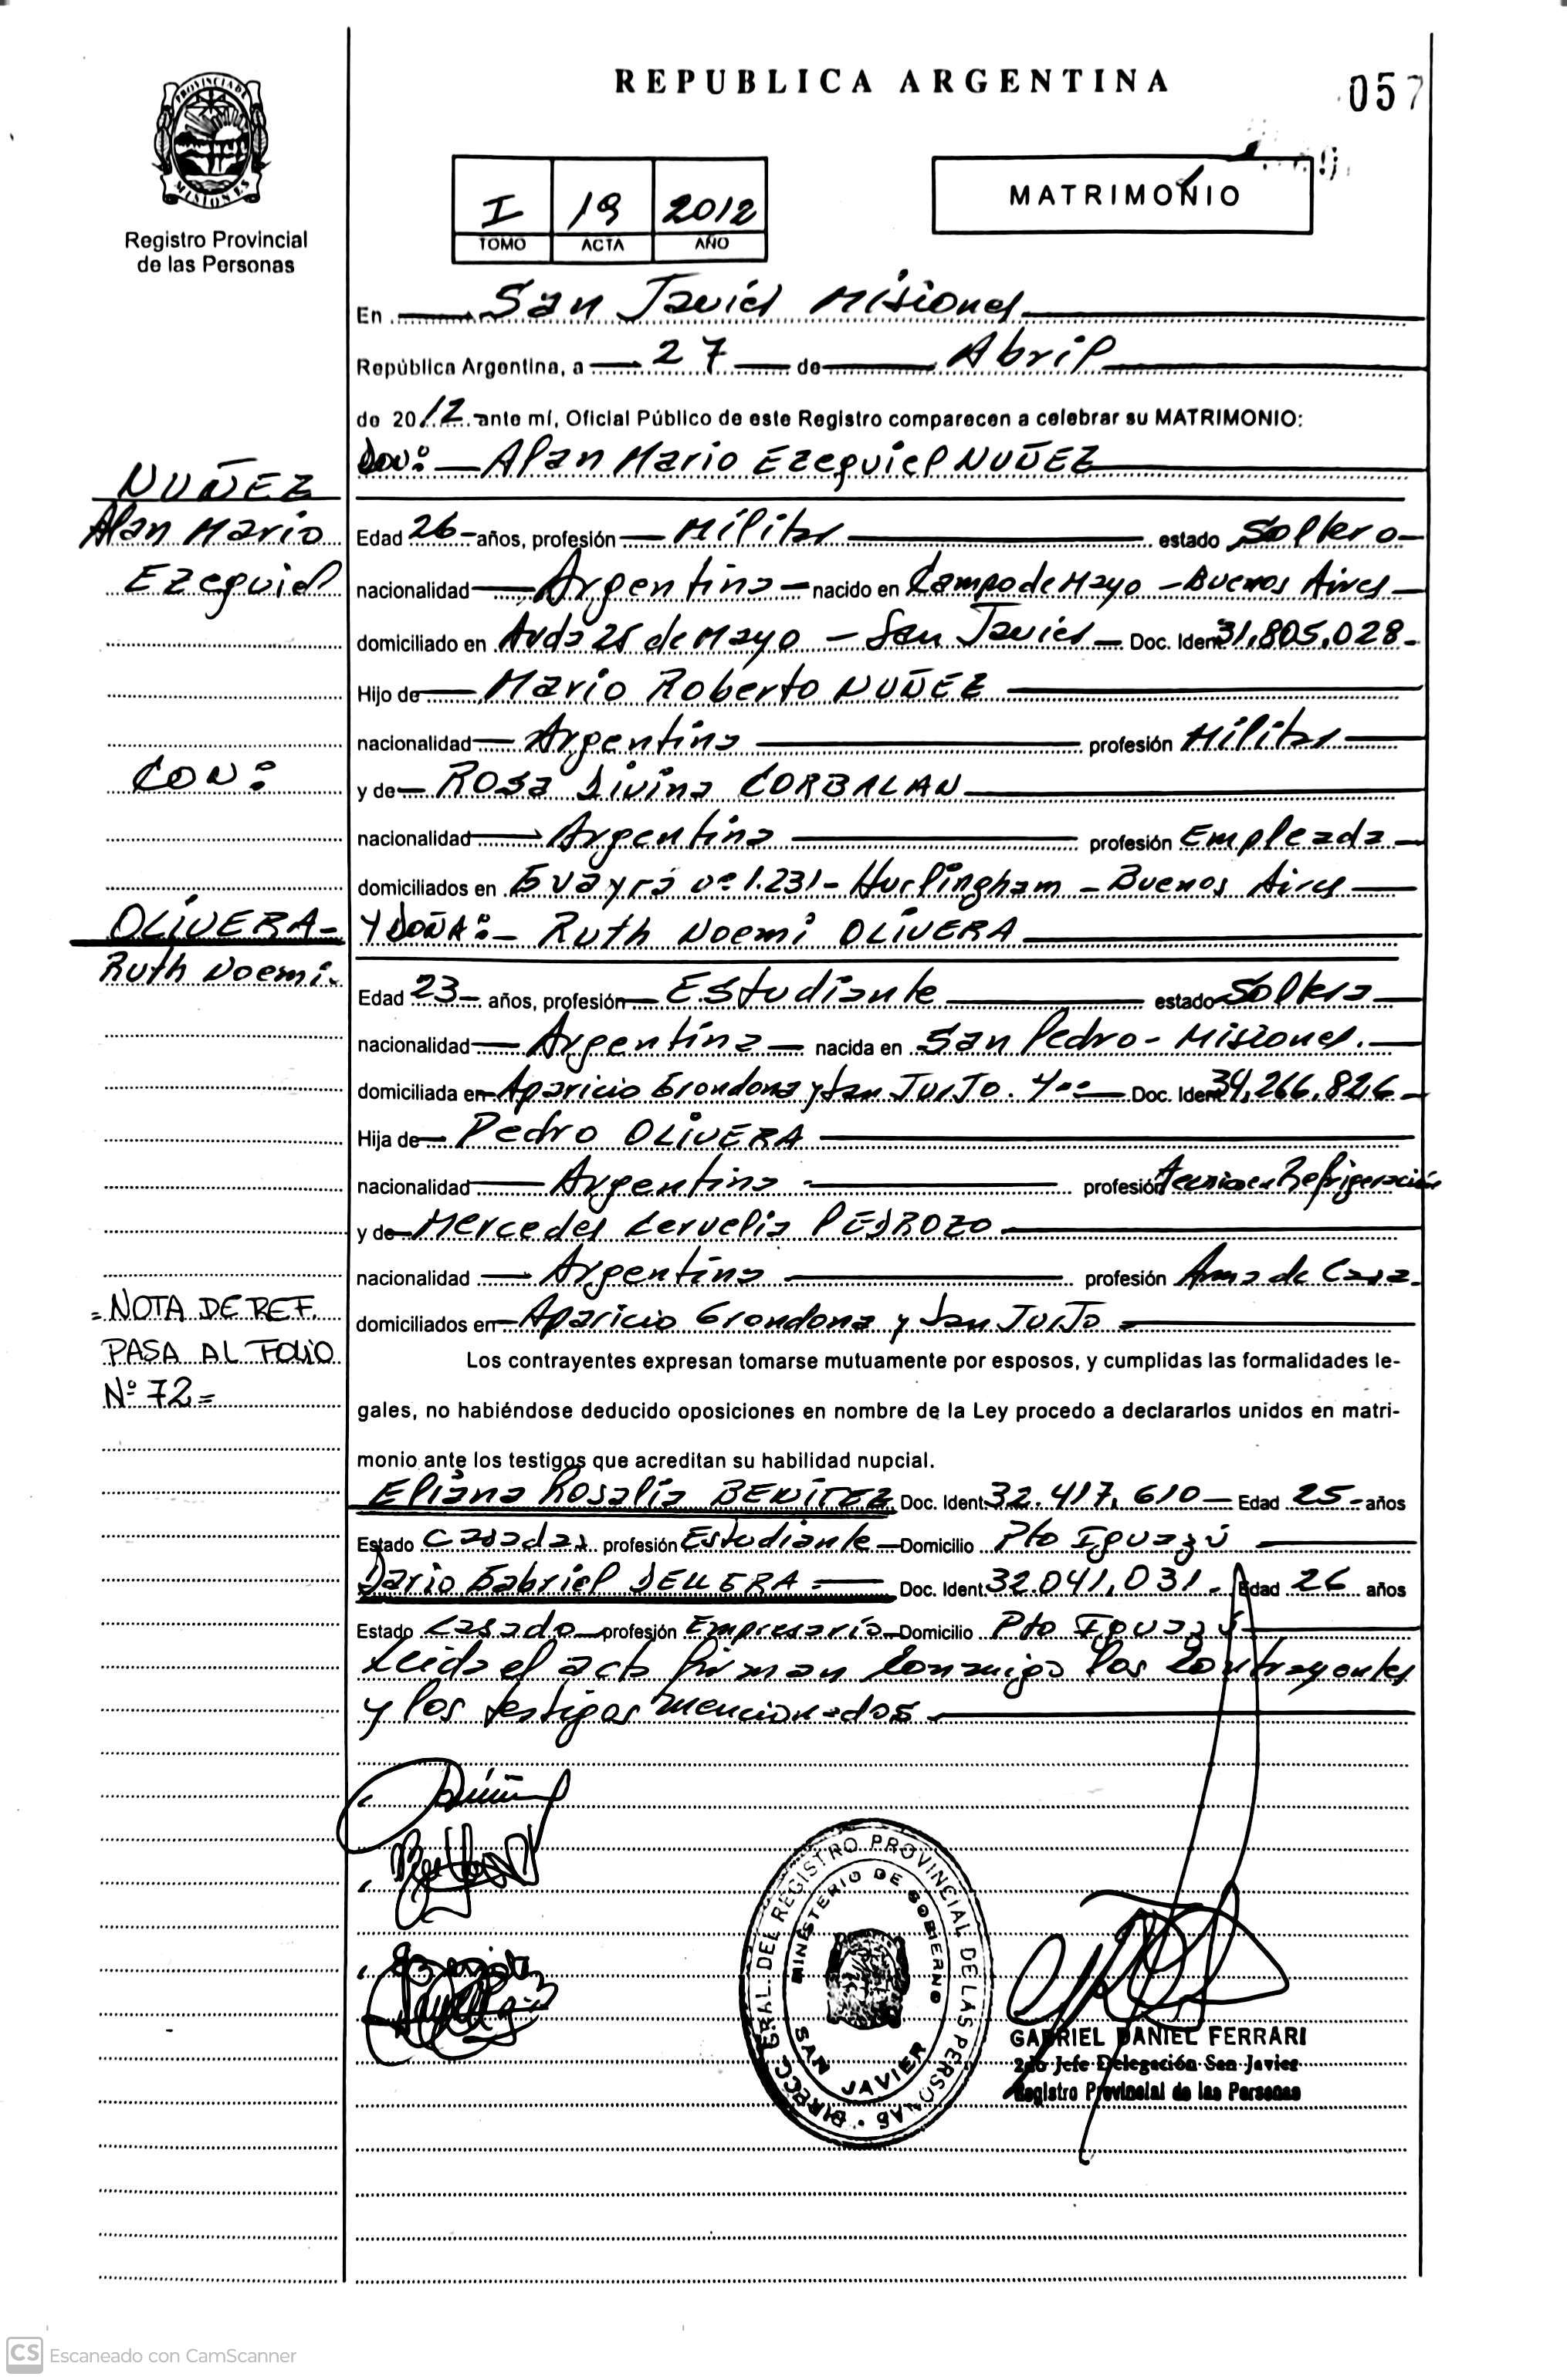 REPUBLICA ARGENTINA
057
PROVINCIA DE MISIONES
Registro Provincial
de las Personas
I 19 2012
TOMO ACTA AÑO
MATRIMONIO
En San Javier Misiones
República Argentina, a 27 de Abril
de 2012 ante mí, Oficial Público de este Registro comparecen a celebrar su MATRIMONIO:
DON: Alan Mario Ezequiel NUÑEZ
NUÑEZ
Alan Mario
Ezequiel
Edad 26 años, profesión Militar estado Soltero
nacionalidad Argentina nacido en Campo de Mayo - Buenos Aires
domiciliado en Avda 25 de Mayo - San Javier Doc. Ident 31.805.028
Hijo de Mario Roberto NUÑEZ
nacionalidad Argentina profesión Militar
CON:
y de Rosa Divina CORBALAN
nacionalidad Argentina profesión Empleada
domiciliados en Guayrá nº 1.231 - Hurlingham - Buenos Aires
OLIVERA
Ruth Noemi
Y DOÑA: Ruth Noemi OLIVERA
Edad 23 años, profesión Estudiante estado Soltera
nacionalidad Argentina nacida en San Pedro - Misiones.
domiciliada en Aparicio Grondona y San Justo. Doc. Ident 34.266.826
Hija de Pedro OLIVERA
nacionalidad Argentina profesión Tecnico en Refrigeración
y de Mercedes PEDROZO
nacionalidad Argentina profesión Ama de Casa
domiciliados en Aparicio Grondona y San Justo
= NOTA DE REF.
PASA AL FOLIO
Nº 72 =
Los contrayentes expresan tomarse mutuamente por esposos, y cumplidas las formalidades le-
gales, no habiéndose deducido oposiciones en nombre de la Ley procedo a declararlos unidos en matri-
monio ante los testigos que acreditan su habilidad nupcial.
Eliana Rosalia BENITEZ Doc. Ident. 32.417.610 Edad 25 años
Estado Casada profesión Estudiante Domicilio Pto Iguazú
Dario Gabriel Doc. Ident. 32.041.031 Edad 26 años
Estado Casado profesión Empresario Domicilio Pto Iguazú
Leida el acta firman conmigo los contrayentes
y los testigos mencionados
DIRECC. GRAL. DEL REGISTRO PROVINCIAL DE LAS PERSONAS
MINISTERIO DE GOBIERNO
SAN JAVIER
GABRIEL DANIEL FERRARI
2do Jefe Delegación San Javier
Registro Provincial de las Personas
CS Escaneado con CamScanner